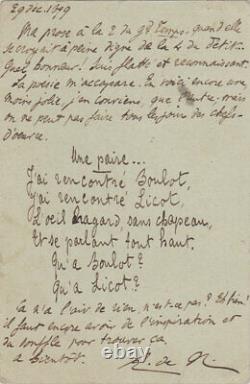 29 Déc. 1879
Ma prose à la 2 du gd Temps, quand elle
se croyait à peine digne de la 4 du petit.
Quel bonheur! Suis flatté et reconnaissant.
La poésie m'accapare. En voici encore une,
moins jolie, j'en conviens, que l'autre, mais
on ne peut pas faire tous les jours des chefs-
d'œuvre.
Une paire...
J'ai rencontré Boulot,
J'ai rencontré Licot,
L'œil hagard, sans chapeau,
Et se parlant tout haut.
Qu'a Boulot?
Qu'a Licot?
Ça n'a l'air de rien, n'est-ce pas? Et bien
il faut encore avoir de l'inspiration et
du souffle pour trouver ça
à bientôt. de